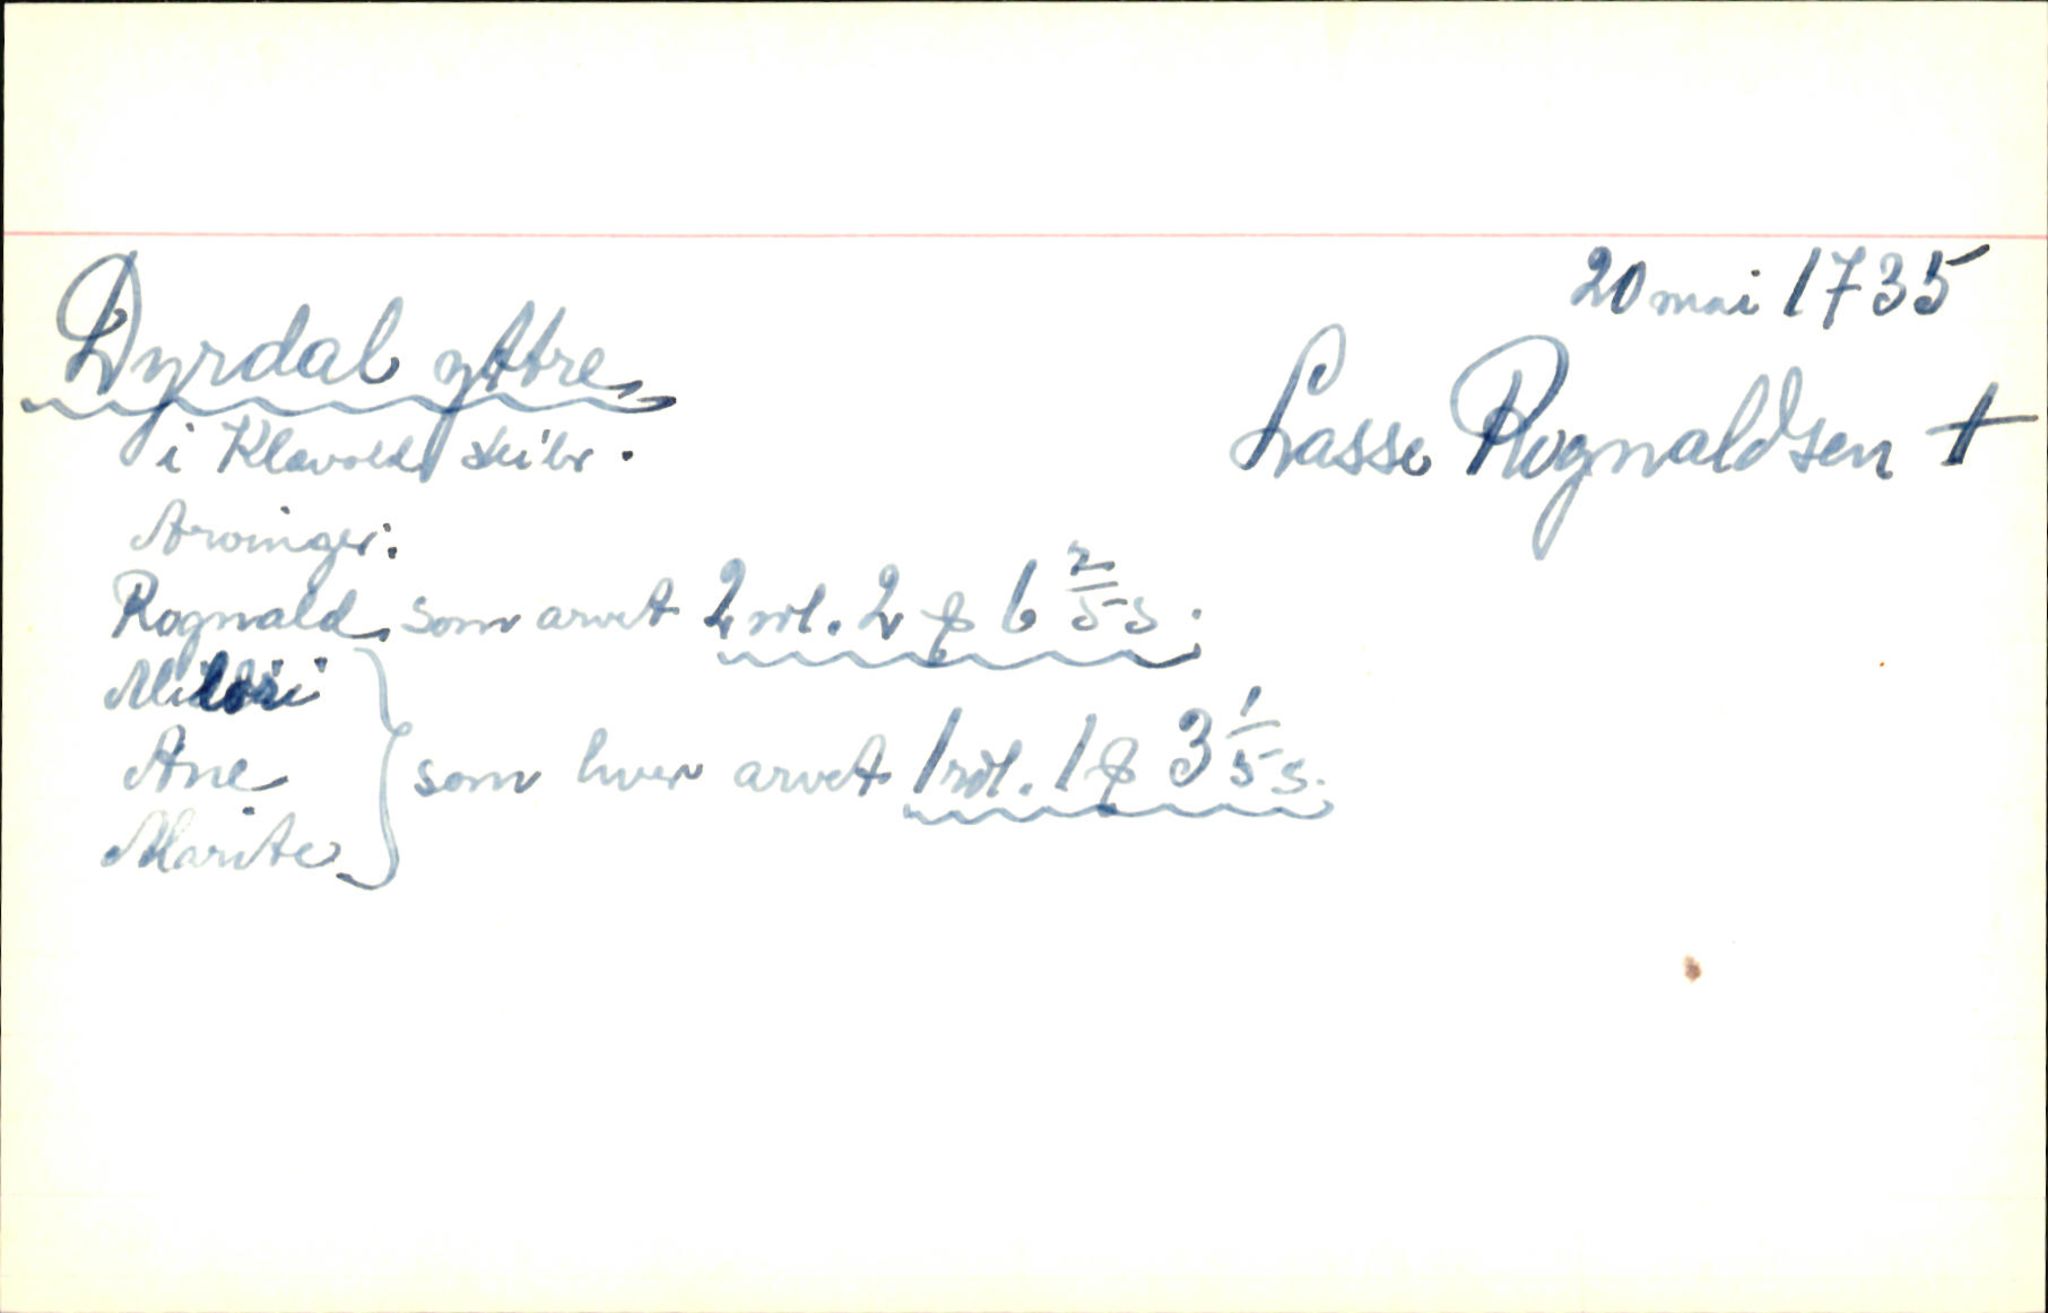 20 mai 1735
Dyrdal yttre
Lasse Rognaldsen +
i Klævolds skibr.
Arvinger:
Rognald, som arvet 2 rdl. 2 ƶ 6 2/5 s.
Ane
som hver arvet 1 rdl. 1 ƶ 3 1/5 s.
Marite